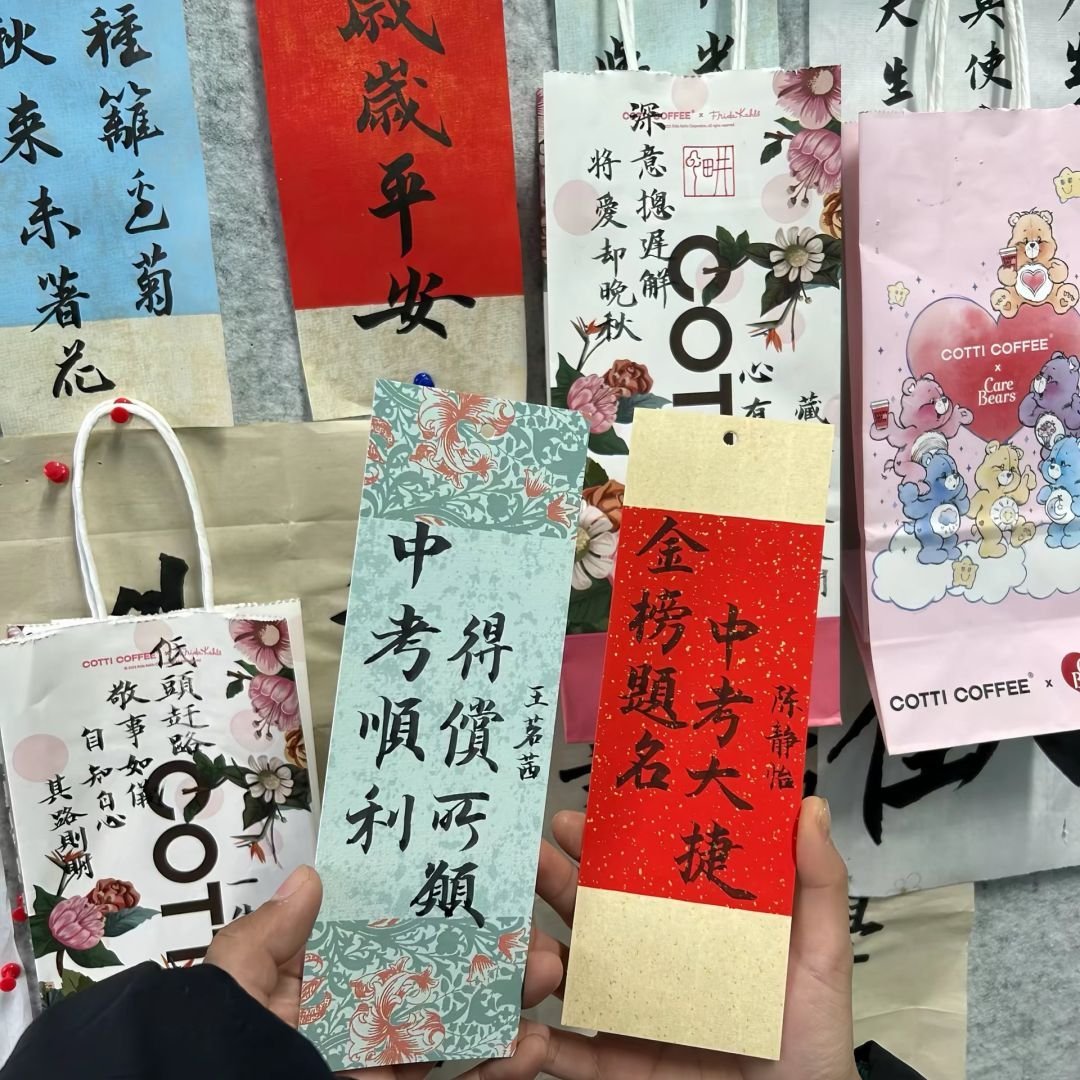 種籬邊菊
秋来未著花
歲歲平安
COTTI COFFEE × Frida Kahlo
深意摠遲解
將愛却晚秋
心有
藏
COT
COTTI COFFEE
×
Care Bears
COTTI COFFEE ×
天生
其使
生
COTTI COFFEE
低頭赶路
敬事如儀
自知自心
其路則明
COTT
一生
王茗茜
得償所願
中考順利
陈静怡
中考大捷
金榜題名